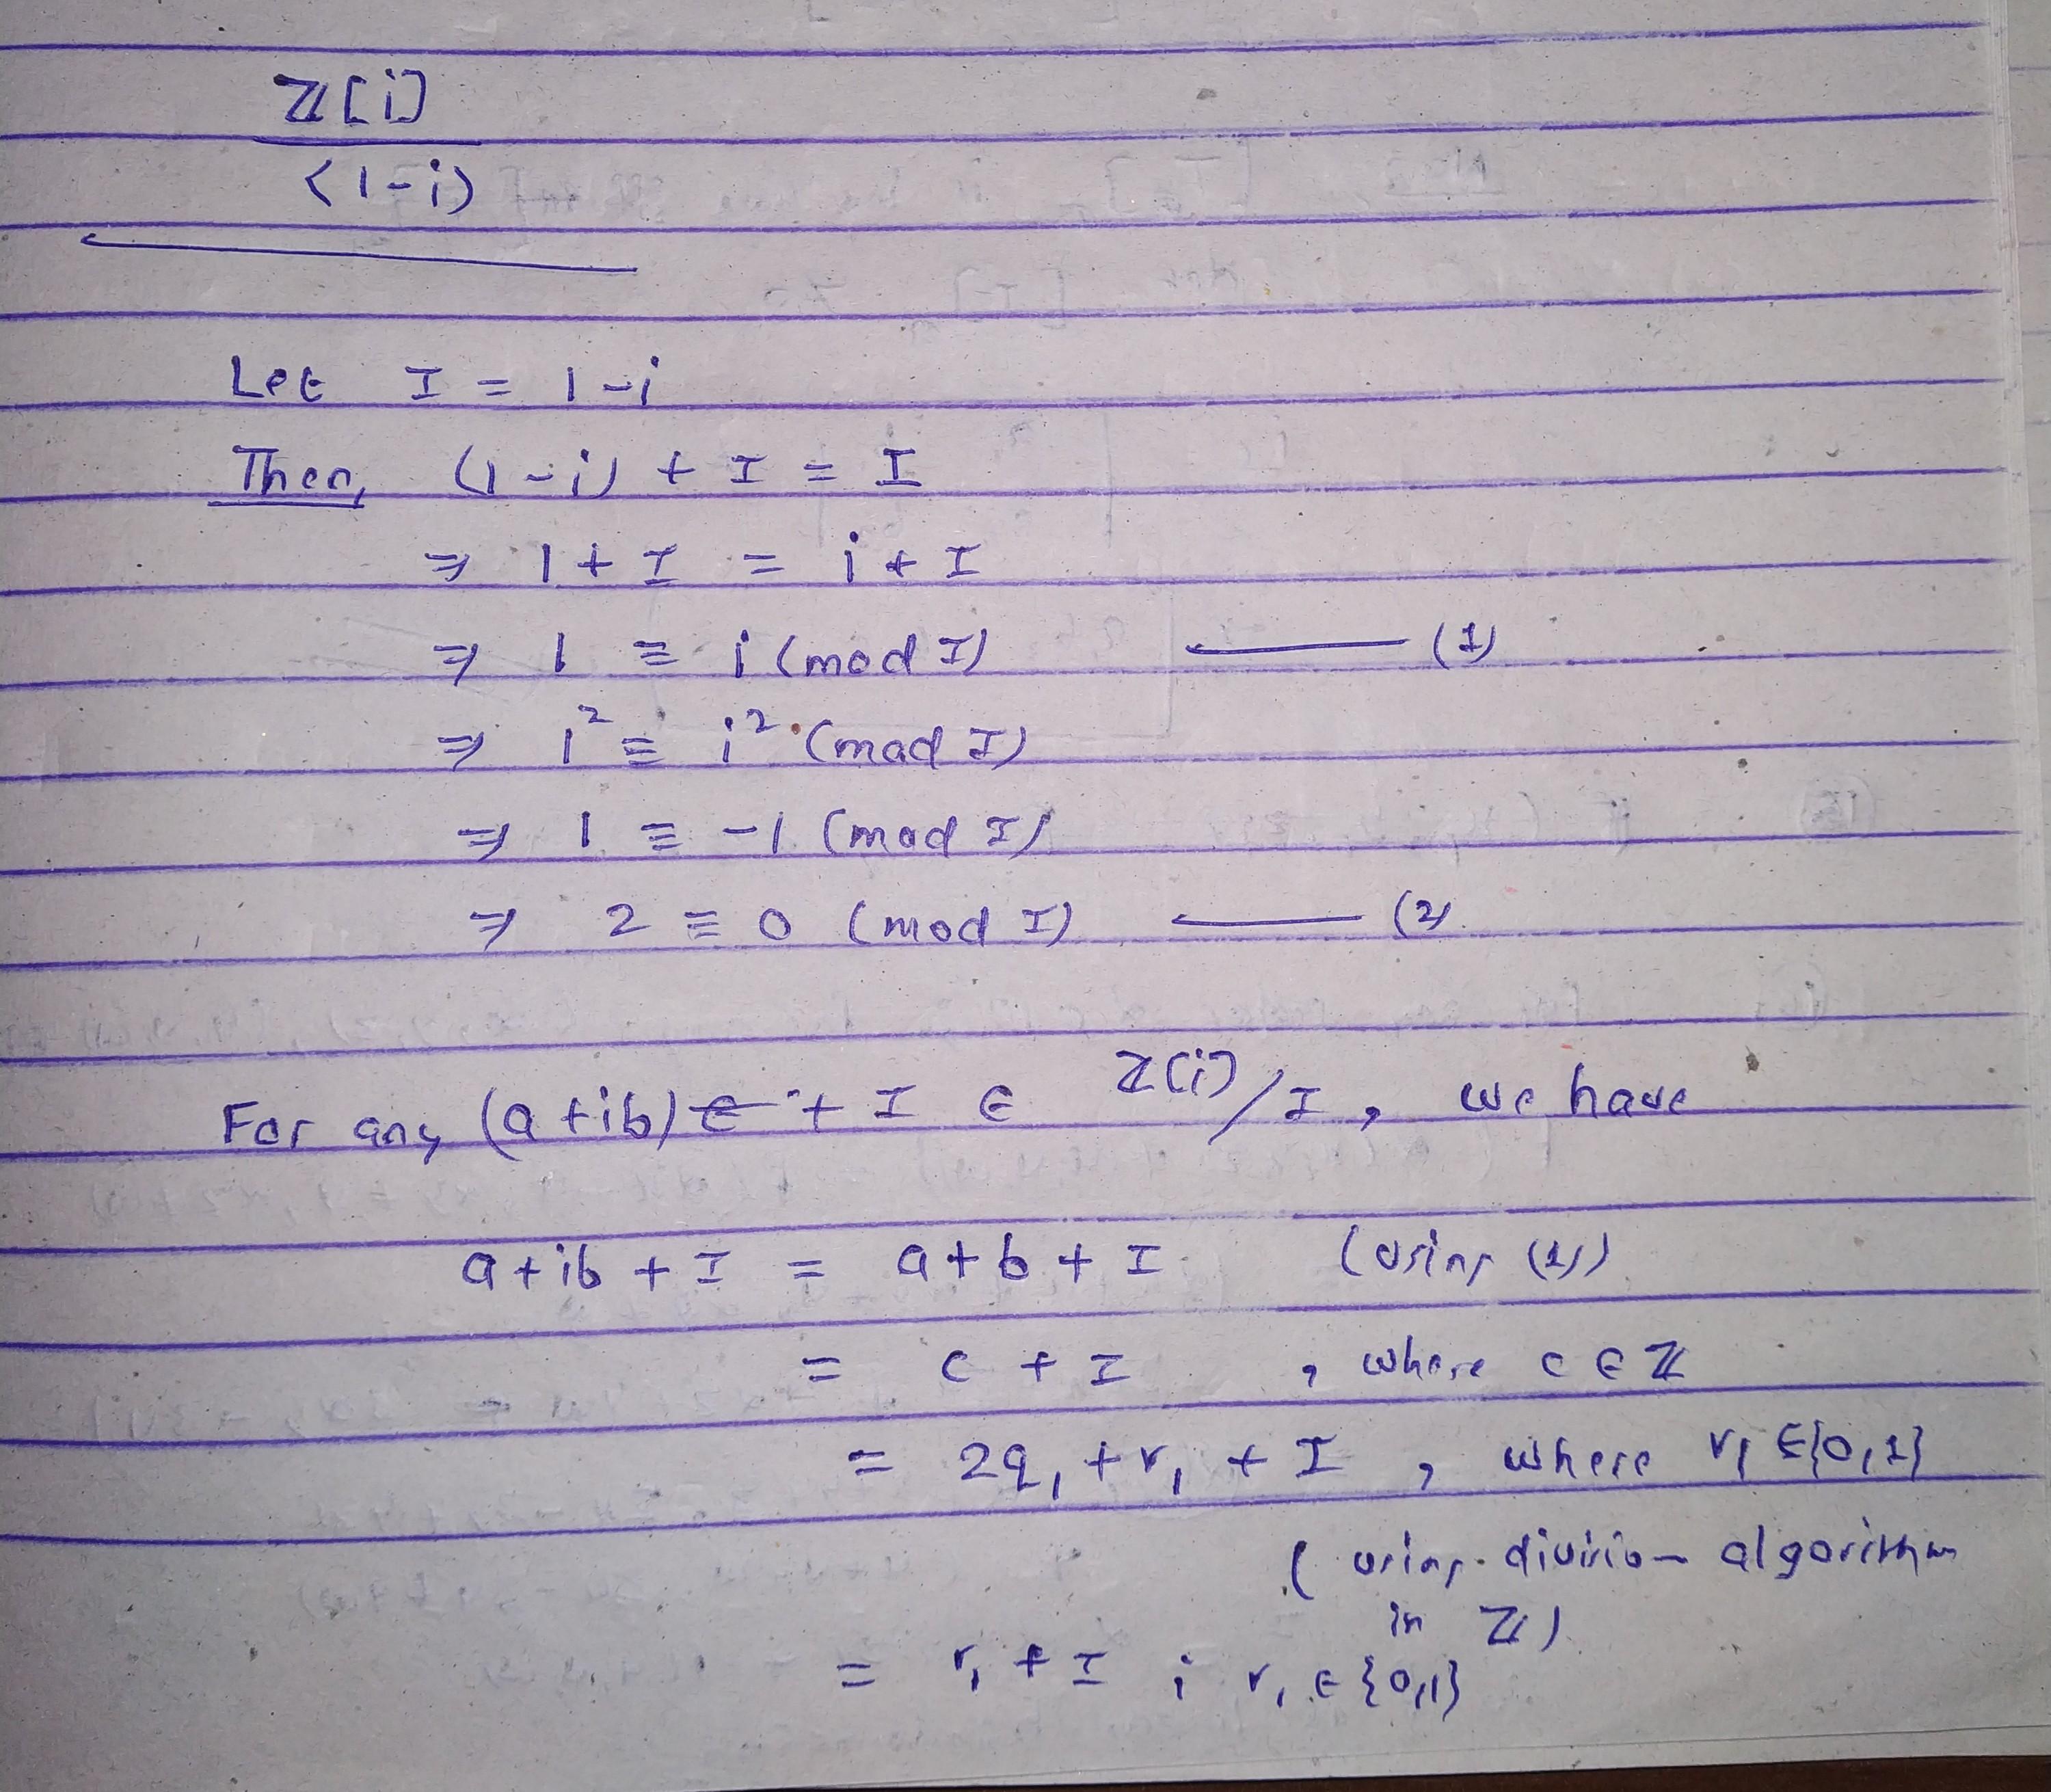 ℤ[i]
<1-i>
Let I = 1-i
Then, (1-i) + I = I
⇒ 1 + I = i + I
⇒ 1 ≡ i (mod I) —— (1)
⇒ 1² ≡ i² (mod I)
⇒ 1 ≡ -1 (mod I)
⇒ 2 ≡ 0 (mod I) —— (2)
For any (a+ib) + I ∈ ℤ[i]/I, we have
a+ib + I = a+b + I (using (1))
= c + I , where c ∈ ℤ
= 2q₁ + r₁ + I , where r₁ ∈ {0,1}
( using division algorithm
in ℤ)
= r₁ + I ; r₁ ∈ {0,1}